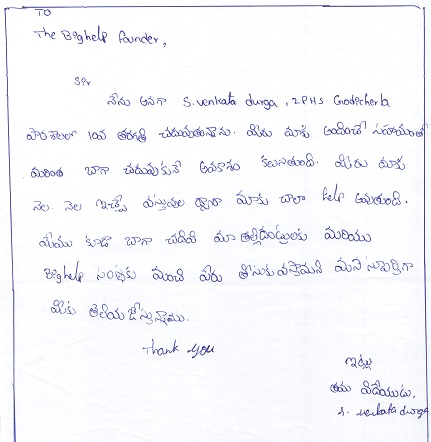 TO
The Bighelp founder,
Sir
నేను అనగా S. venkata durga, ZPHS Godicherla
పాఠశాలలో 10వ తరగతి చదువుతున్నాను. మీరు మాకు అందించే సహాయంతో
మరింత బాగా చదువుకునే అవకాశం కలుగుతుంది. మీరు మాకు
నెల. నెల ఇచ్చే వస్తువుల ద్వారా మాకు చాలా help అవుతుంది.
మేము కూడా బాగా చదివి మా తల్లిదండ్రులకు మరియు
Bighelp సంస్థకు మంచి పేరు తీసుకువస్తామని మన స్ఫూర్తిగా
మీకు తెలియ జేస్తున్నాము.
Thank you
ఇట్లు
తమ విధేయుడు.
S. venkata durga